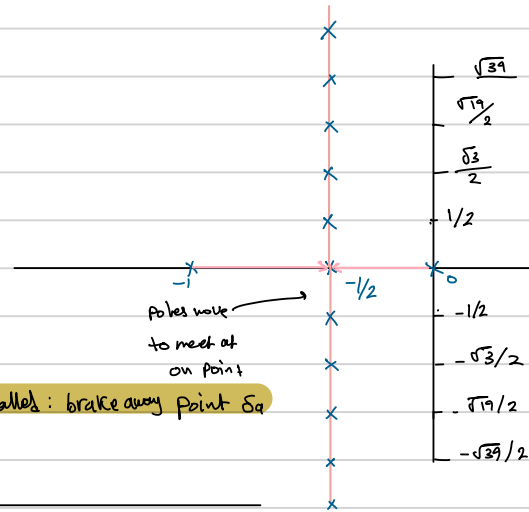 √39
√19/2
√3/2
1/2
-1
-1/2
0
poles move
to meet at
on point
-1/2
-√3/2
alled: brake away point δa
-√19/2
-√39/2